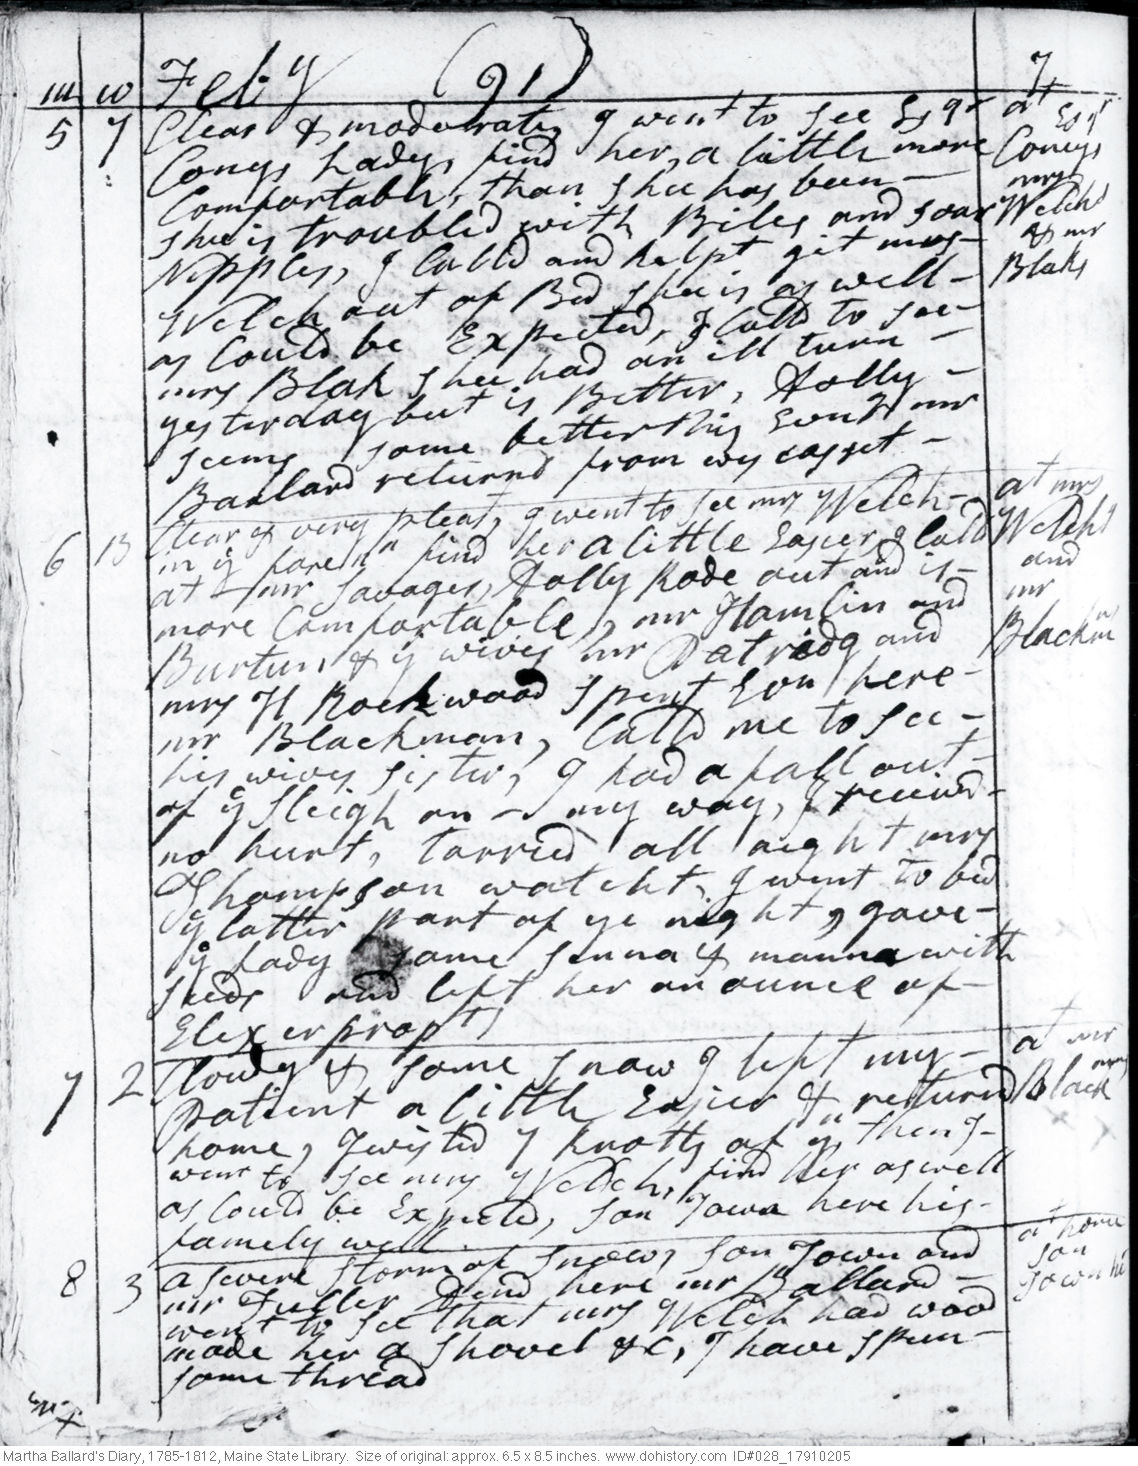 m w Feb y (91) 7
5 7 Clear & moderate, I went to see Esqr at Esqr
Conys Lady, find her, a little more Conys
Comfortable, than shee has been - mrs
shee is troubled with Biles and soar Welchs
Nipples, I Calld and helpt git mrs - & mr
Welch out of Bed shee is as well - Blaks
as Could be Expected, I Calld to see -
mrs Blak shee had an ill turn -
yesterday but is Better, Dolly -
seems some better this Evng mr
Ballard returnd from wycasset -
6 Clear & very pleast, I went to see mrs Welch - at mrs
in ye foren n find her a little Easier, I Calld Welchs
at mr Savages, Dolly Rode out and is - and
more Comfortable, mr Hamlin and mr
Burtun, & ye wives mr Patridg and Blackm ns
mrs H Rockwood spent Evn here -
mr Blackman, Calld me to see -
his wives sister, I had a fall out -
of ye sleigh on - my way, I received -
no hurt, Tarried all night mrs
Thompson watcht, I went to bed
ye latter part of ye night, I gave -
ye Lady some senna & manna with
seeds and left her an ounce of -
Elexer prop t
7 2 Clowdy & some snow I left my - at mr
patient a little Easier & returnd Black
home, Twisted 7 knotts of y rn then I - mns
went to see mrs Welch, find her as well
as Could be Expected, son Town here his -
famely well
8 3 a severe storm of snow, son Town and at home
mr Fuller Dind here mr Ballard - son
went to see that mrs Welch had wood Town here
made her a shovel &C, I have spun -
some thread
Martha Ballard's Diary, 1785-1812, Maine State Library. Size of original: approx. 6.5 x 8.5 inches. www.dohistory.com ID#028_17910205